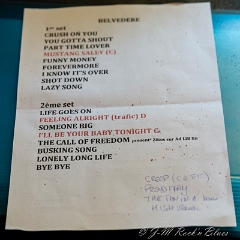 BELVEDERE
1er set
CRUSH ON YOU
YOU GOTTA SHOUT
PART TIME LOVER
MUSTANG SALLY (C)
FUNNY MONEY
FOREVERMORE
I KNOW IT'S OVER
SHOT DOWN
LAZY SONG
2ème set
LIFE GOES ON
FEELING ALRIGHT (trafic) D
SOMEONE BIG
I'LL BE YOUR BABY TONIGHT G
THE CALL OF FREEDOM
BUSKING SONG
LONELY LONG LIFE
BYE BYE
PROUD MARY
© J-M Rock'n'Blues